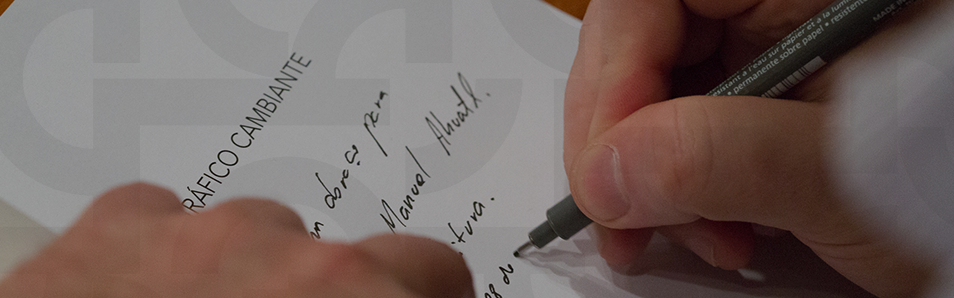 RÁFICO CAMBIANTE
un abrazo para
Manuel
itura.
de
istant à l'eau sur papier et à la lumi
• permanente sobre papel • resistente
MADE IN